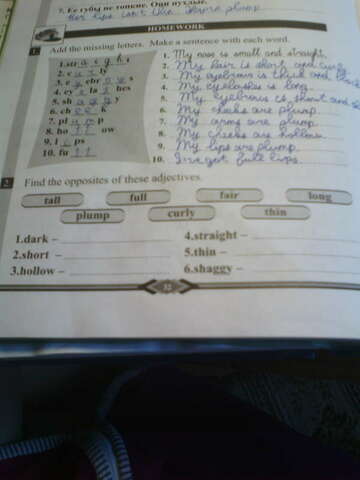 7. Её губы не тонкие. Они пухлые.
Her lips isn't thin. They're plump.
HOMEWORK
1. Add the missing letters. Make a sentence with each word.
1. str a i g h t
2. c u r ly
3. e y ebr o w s
4. ey e la s hes
5. sh a g g y
6. ch e e k
7. pl u m p
8. ho l l ow
9. l i ps
10. fu l l
1. My nose is small and straight.
2. My hair is short and curly.
3. My eyebrows is thick and
4. My eyelashes is long.
5. My eyebrows is short and
6. My cheeks are plump.
7. My arms are plump.
8. My cheeks are hollow.
9. My lips are plump.
10. I've got full lips.
2. Find the opposites of these adjectives.
tall full fair long
plump curly thin
1.dark –
2.short –
3.hollow –
4.straight –
5.thin –
6.shaggy –
32